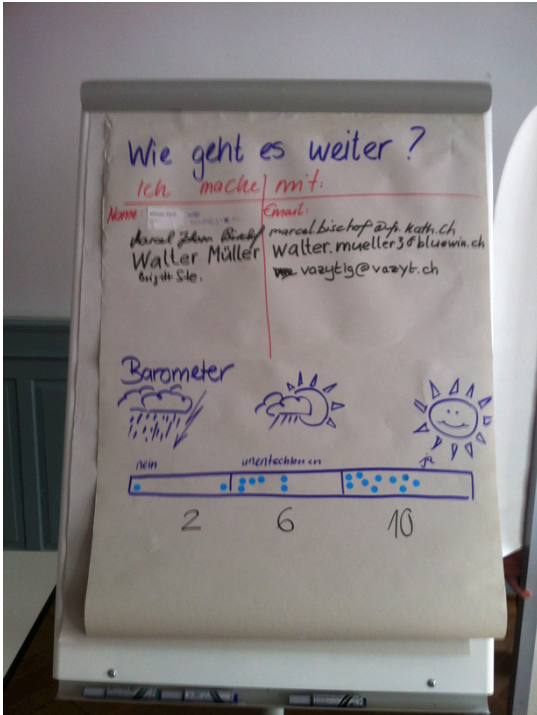 Wie geht es weiter?
Ich mache mit:
Name: Email:
Marcel marcel.bischof@fr.kath.ch
Walter Müller walter.mueller36bluewin.ch
vazytig@vazyt.ch
Barometer
nein unentschlossen ja
2 6 10